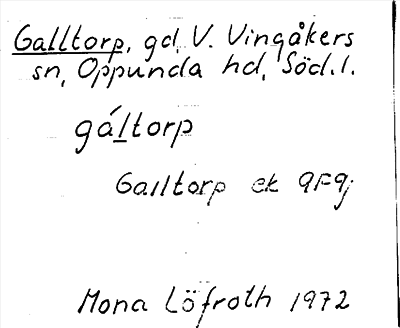 Galltorp, gd, V. Vingåkers
sn, Oppunda hd, Söd.l.
gáḻtorp
Galltorp ek 9F9j
Mona Löfroth 1972